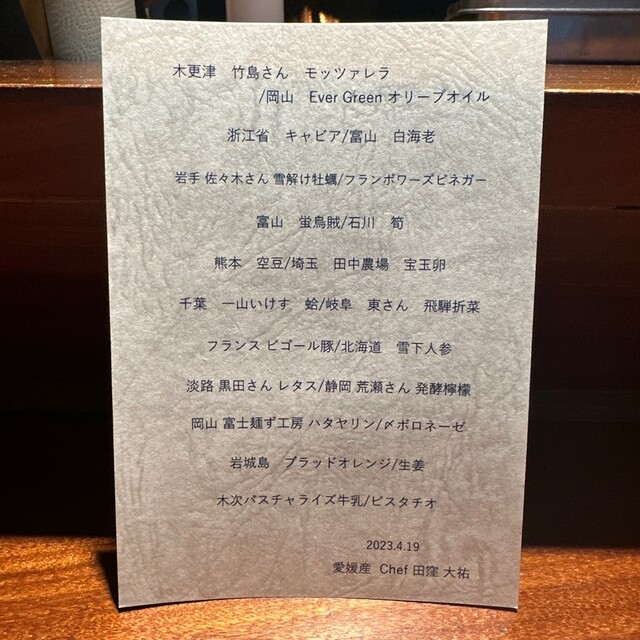 木更津　竹島さん　モッツァレラ
/岡山　Ever Green オリーブオイル
浙江省　キャビア/富山　白海老
岩手 佐々木さん 雪解け牡蠣/フランボワーズビネガー
富山　蛍烏賊/石川　筍
熊本　空豆/埼玉　田中農場　宝玉卵
千葉　一山いけす　蛤/岐阜　東さん　飛騨折菜
フランス ビゴール豚/北海道　雪下人参
淡路 黒田さん レタス/静岡 荒瀬さん 発酵檸檬
岡山 富士麺ず工房 ハタヤリン/〆ボロネーゼ
岩城島　ブラッドオレンジ/生姜
木次パスチャライズ牛乳/ピスタチオ
2023.4.19
愛媛産 Chef 田窪 大祐